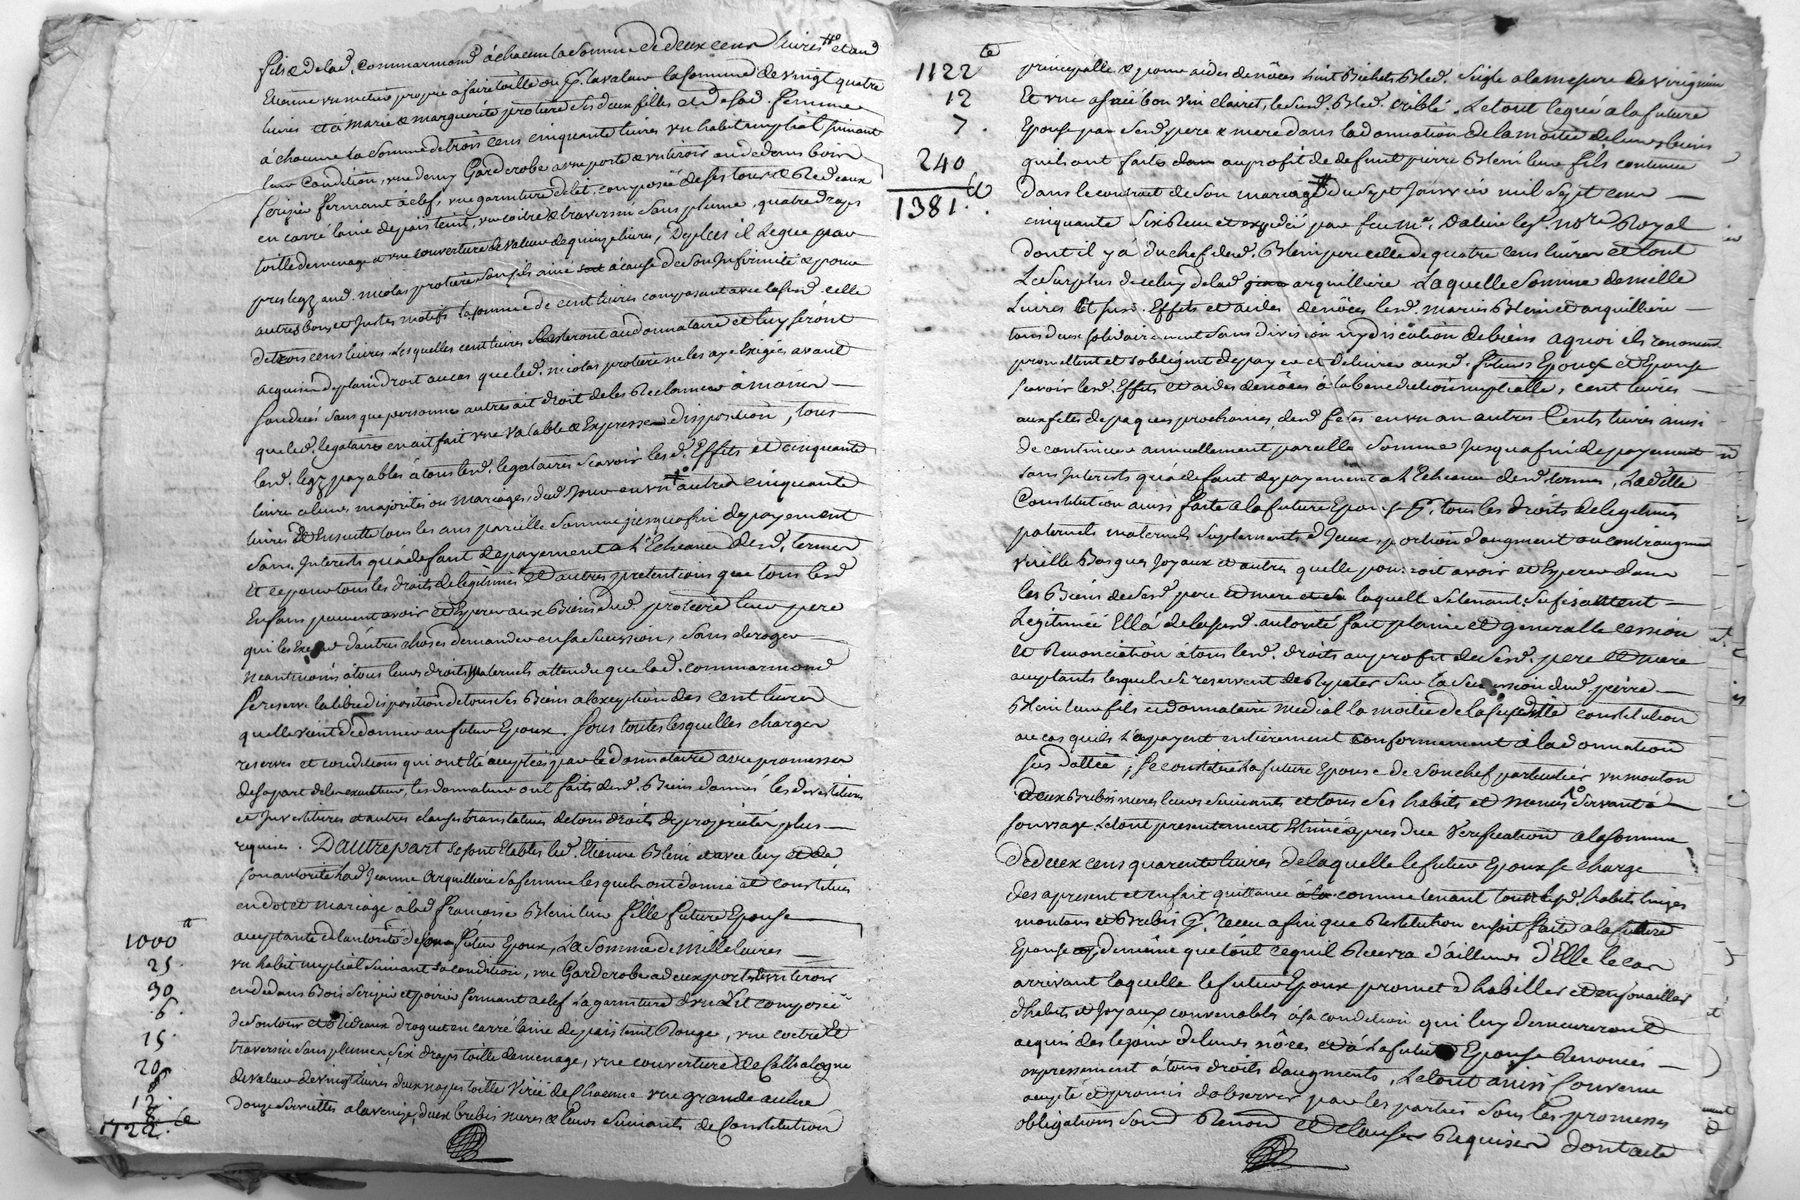 fils de lad. Commarmond à chacun la somme de deux cens livres et aud
Etienne un metier propre a faire toille ou pr. la valeur la somme de vingt quatre
livres et à Marie & marguerite protiere ses deux filles et d. lad. femme
à chacune la somme de trois cens cinquante livres un habit nuptial suivant
leur Condition, une demy Garderobe a une porte & un tiroir au dedans bois
Cerisier fermant à clef, une garniture de lit, composée de ses tours & Rideaux
en carré laine de païs teint, une coitre & traversin sans plume, quatre draps
toille de menage & une couverture de valeur de quinze livres, De plus il Legue par
preslegz aud. nicolas protiere son fils ainé à cause de son Infirmité & pour
autres bons et Justes motifs la somme de cent livres composant avec la susd. celle
de trois cens livres Lesquelles cent livres resteront au donnataire et luy seront
acquises de plain droit au cas que led. nicolas protiere ne les aye Exigées avant
son decés sans que personne autre ait droit de les Reclamer à moins
que led. legataire en ait fait une valable & Expresse disposition, tous
lesd. legz payables à tous lesd. legataires scavoir lesd. Effets et cinquante
livres a leurs majorités ou mariages, dud. Jour en un an autres cinquante
livres Et Ensuitte tous les ans pareille somme jusqu'a fin de payement
sans Interests qu'à defaut de payement a L'Echeance desd. termes
Et ce pour tous les droits de legitimes et autres pretentions que tous lesd
Enfans peuvent avoir et Esperer aux Biens dud. protiere leur pere
qui les Exclud d'autres choses demander en sa succession, sans deroger
neantmoins à tous leurs droits Maternels attendu que lad. Commarmond
se reserve la libre disposition de tous ses Biens a l'exception des cent livres
qu'elle vient de donner au futur Epoux. Sous toutes lesquelles charges
reserves et conditions qui ont été acceptées par le donnataire avec promesse
de sa part de les executer, les donnateurs ont faits desd. Biens donnés les devestitures
et Investitures et autres clauses translatives de tous droits de proprieté plus
requises. D'autre part se sont Etablis led. Etienne Bleini et avec luy et de
son autorité lad. Jeanne Arquilliere sa femme lesquels ont donné et constitué
en dot et mariage à lad. françoise Bleini leur fille future Epouse
acceptante de l'autorité de son futur Epoux, La somme de Mille livres
1000 tt
un habit nuptial suivant sa condition, une Garderobe a deux portes & un tiroir
25
en dedans Bois Cerisier et poirier fermant a clef La garniture d'un Lit composée
90
6
de son tour et Rideaux droguet en carré laine de païs teint Rouge, une coitre et
15
traversin sans plumes, six draps toille de menage, une couverture de Cathalogne
20
de valeur de vingt livres deux napes toille
une grande autre
12
douze serviettes a la venise, deux brebis meres & leurs suivants de Constitution
1122 tt
1122 tt
12
7
240
1381 tt
principalle & pour aides de nôces huit Bichets Bled. Seigle a la mesure de virignieu
Et une asnée bon vin clairet, le susd. Bled. criblé. Le tout legué a la future
Epouse par sesd. pere & mere dans la donnation de la moitié de leurs biens
qu'ils ont faits au profit de defunt pierre Bleini leur fils contenue
dans le contrat de son mariage du sept Janvier mil sept cens
cinquante six Reçu et expedié par feu Me. Dalin les. nore Royal
dont il y a du chef dud. Bleini pere celle de quatre cens livres et tout
Le surplus de celuy de lad. arquilliere Laquelle somme de mille
Livres Et susd. Effets et aides de nôces lesd. mariés Bleini et arquilliere
tous deux solidairement sans division ny discution de biens a quoi ils renoncent
promettent et s'obligent de payer et delivrer auxd. futurs Epoux et Epouse
scavoir lesd. Effets et aides de nôces à la benediction nuptialle, cent livres
aux fêtes de paques prochaines, desd. fêtes en un an autres Cents livres ainsi
de continuer annuellement pareille somme Jusqu'a fin de payement
sans Interests qu'à defaut de payement a L'Echeance desd. termes, Ladite
Constitution ainsi faite a la future Epouse pr. tous les droits de legitimes
paternels maternels suplements d'Iceux, portion d'augment ou contraugment
vieille Bagues Joyaux et autres qu'elle pourroit avoir et Esperer dans
les Biens de sesd. pere et mere de laquelle se tenant suffisament
Legitimée Ellà de la susd. autorité fait pleine et generalle cession
et Renonciation à tous lesd. droits au profit de sesd. pere et mere
acceptants lesquels se reservent de Repeter sur la succession dud. pierre
Bleini leur fils et donnataire Medial la moitié de la susditte constitution
au cas qu'ils L'aquitent entierement conformement à la donnation
sus dattée; se constitue la future Epouse de son chef particulier un mouton
deux Brebis meres leurs suivants et tous ses habits et Nances servant à
son usage Le tout presentement Estimé apres due verification a la somme
de deux cens quarente livres de laquelle le futur Epoux se charge
des apresent et en fait quittance comme tenant tout lesd. habits linges
moutons et Brebis pr. Receu afin que Restitution en soit faite a la future
Epouse de même que tout ce qu'il Recevra d'ailleurs d'Elle le cas
arrivant laquelle le futur Epoux promet d'habiller et enjouailler
d'habits et Joyaux convenables à sa condition qui luy demeureront
acquis des le jour de leurs nôces et à La future Epouse Renoncé
expressement à tous droits d'augments, Le tout ainsi Convenu
accepté et promis d'observer par les parties sous les promesses
obligations soumd. Renond. et clauses Requises dont acte